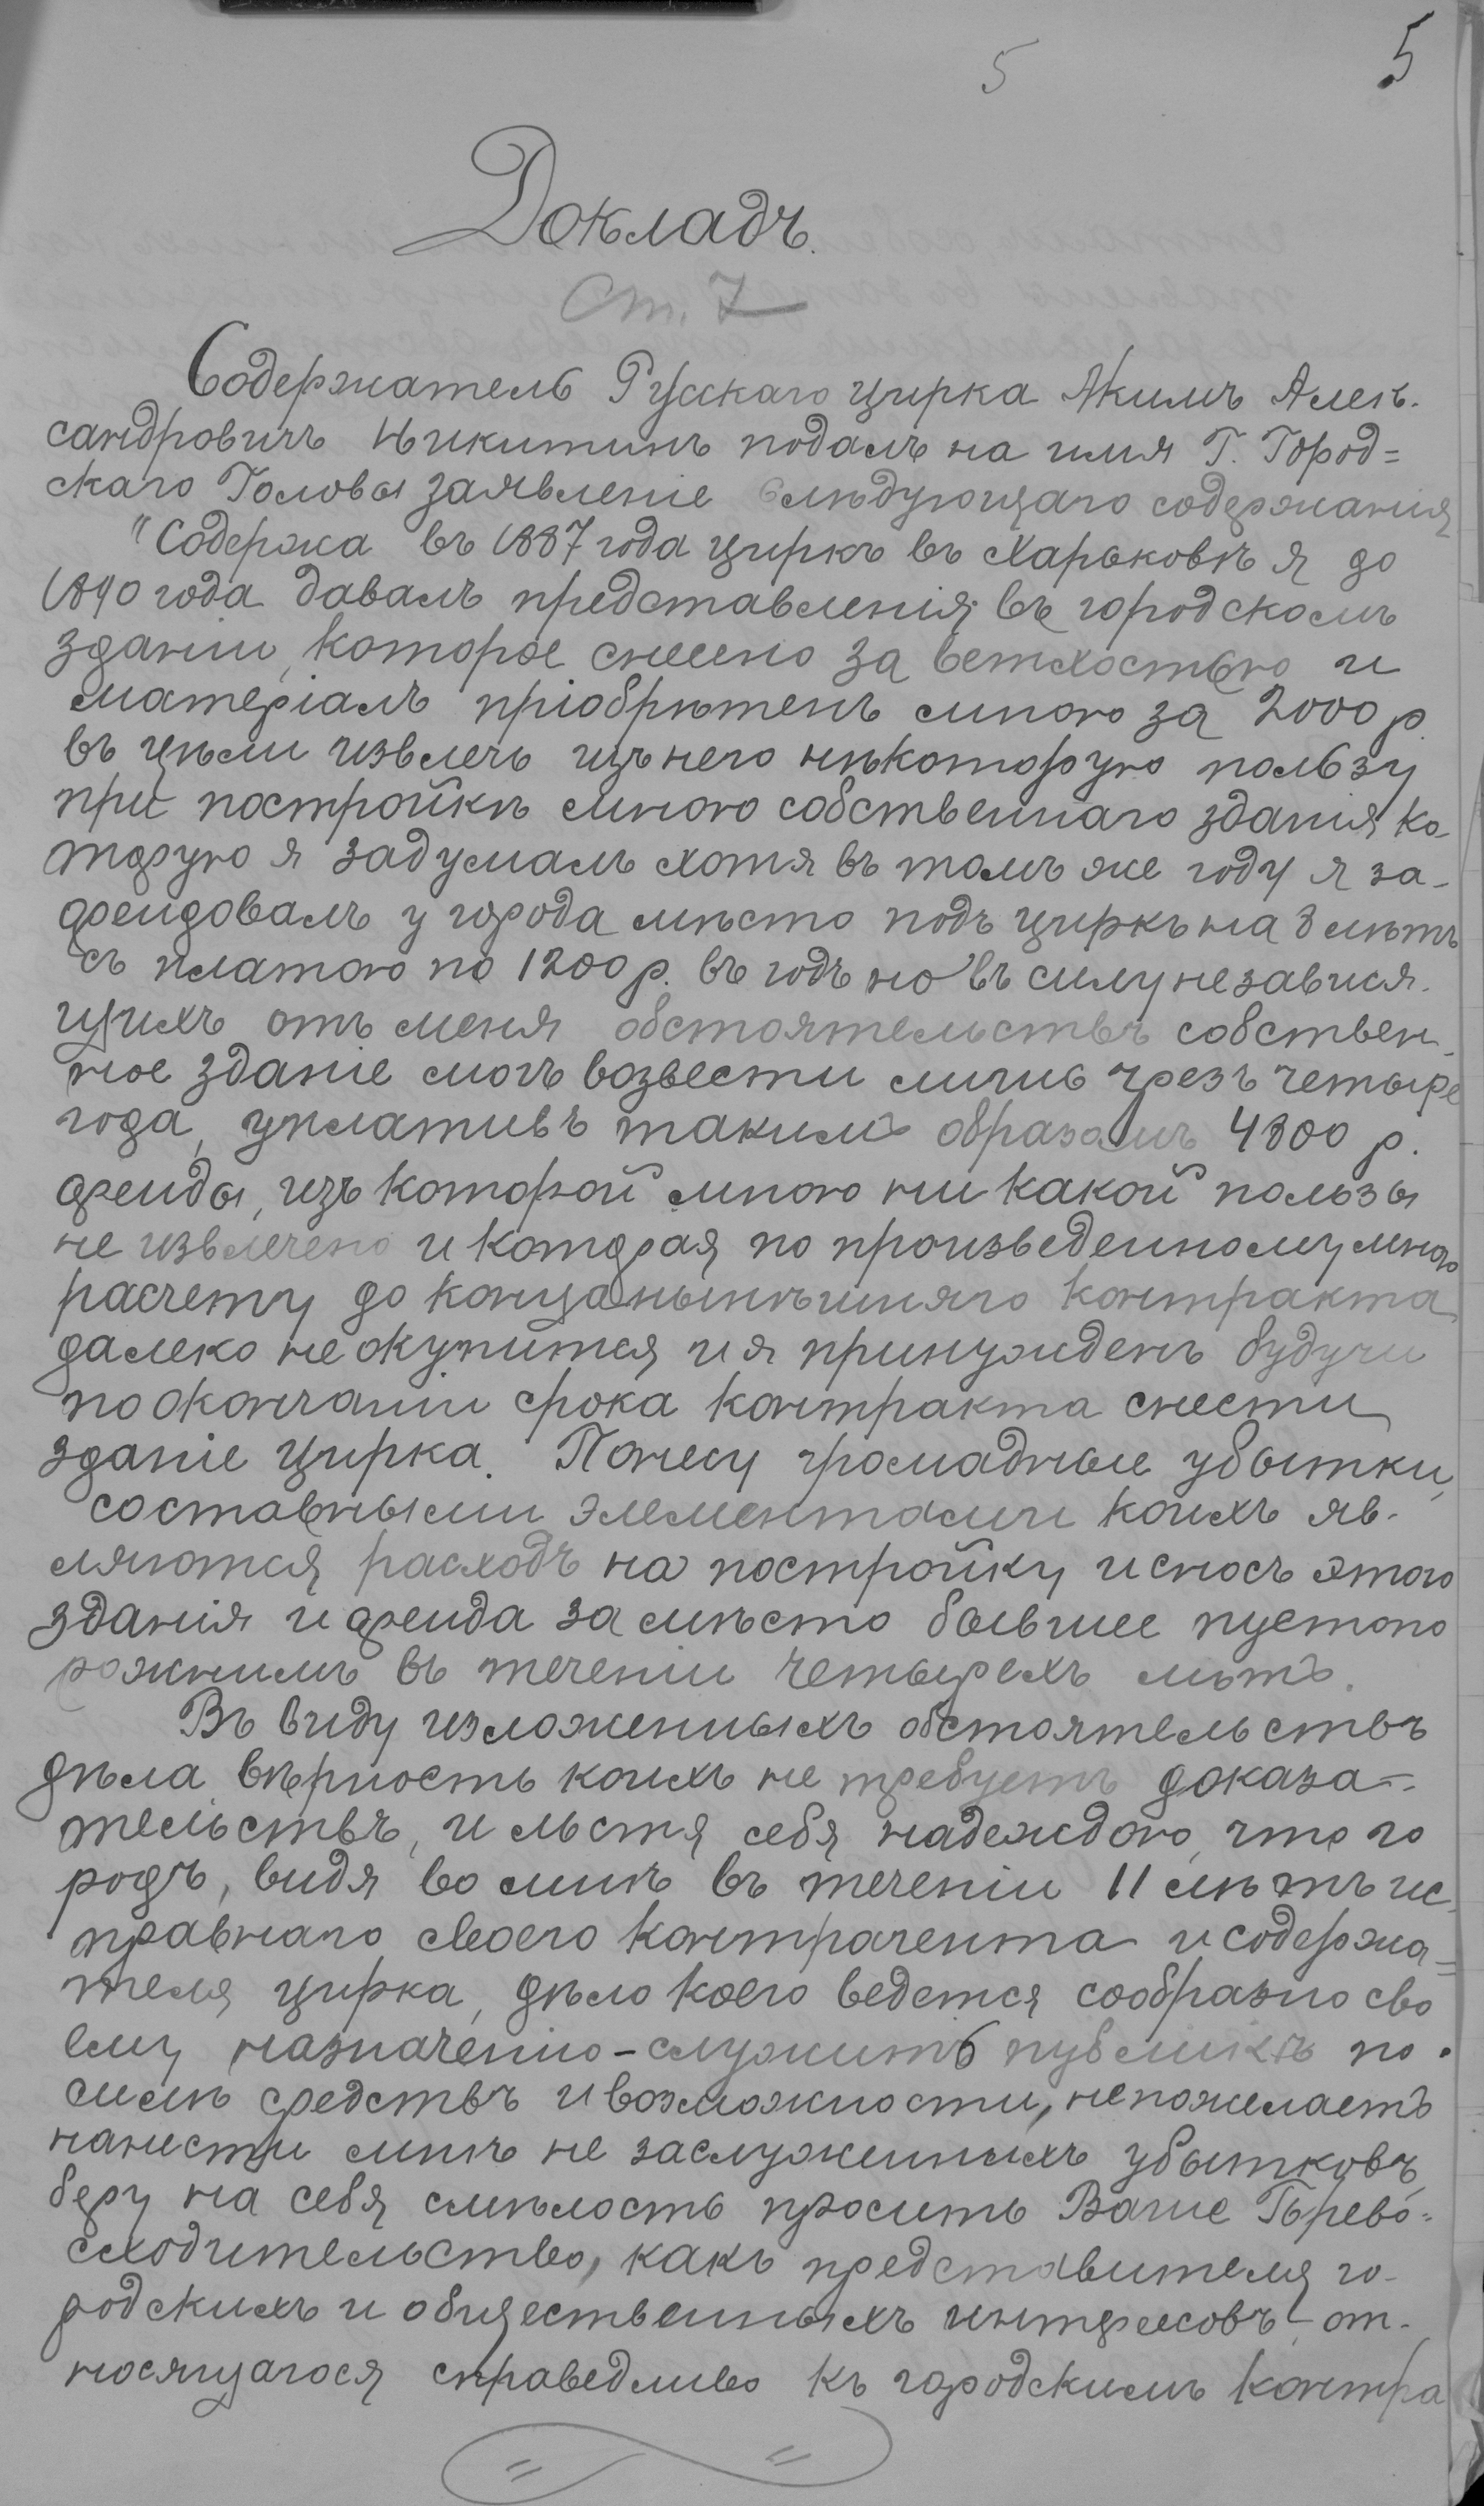 5
5
Докладъ.
Ст. 7
Содержатель Русскаго цирка Акимъ Алек-
сандровичъ Никитинъ подалъ на имя Г. Город=
скаго Головы заявленіе слѣдующаго содержанія
"Содержа въ 1887 года циркъ въ Харьковѣ я до
1890 года давалъ представленія въ городскомъ
зданіи, которое снесено за ветхостью и
матеріалъ пріобрѣтенъ мною за 2000 р.
въ цѣли извлечь изъ него нѣкоторую пользу
при постройкѣ мною собственнаго зданія ко-
торую я задумалъ хотя въ томъ же году я за-
арендовалъ у города мѣсто подъ циркъ на 8 лѣтъ
съ платою по 1200 р. въ годъ но въ силу независя-
щихъ отъ меня обстоятельствъ собствен-
ное зданіе могъ возвести лишь чрезъ четыре
года, уплативъ такимъ образомъ 4800 р.
аренды, изъ которой мною ни какой пользы
не извлечено и которая по произведенному мною
расчету до конца нынѣшняго контракта
далеко не окупится и я принужденъ будучи
по окончаніи срока контракта снести
зданіе цирка. Понесу громадные убытки,
составными элементами коихъ яв-
ляются расходъ на постройку и сносъ этого
зданія и аренда за мѣсто бывшее пустопо
рожнимъ въ теченіи четырехъ лѣтъ.
Въ виду изложенныхъ обстоятельствъ
дѣла вѣрность коихъ не требуетъ доказа-
тельствъ, и льстя себя надеждою, что го
родъ, видя во мнѣ въ теченіи 11 лѣтъ ис-
правнаго своего контрагента и содержа=
теля цирка, дѣло коего ведется сообразно сво
ему назначенію - служить публикѣ по
силѣ средствъ и возможности, не пожелаетъ
нанести мнѣ не заслуженныхъ убытковъ,
беру на себя смѣлость просить Ваше Прево=
сходительство, какъ представителя го-
родскихъ и общественныхъ интересовъ, от-
носящагося справедливо къ городскимъ контра